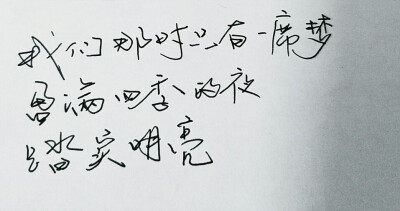 我们那时只有一席梦
落满四季的夜
踏实明亮